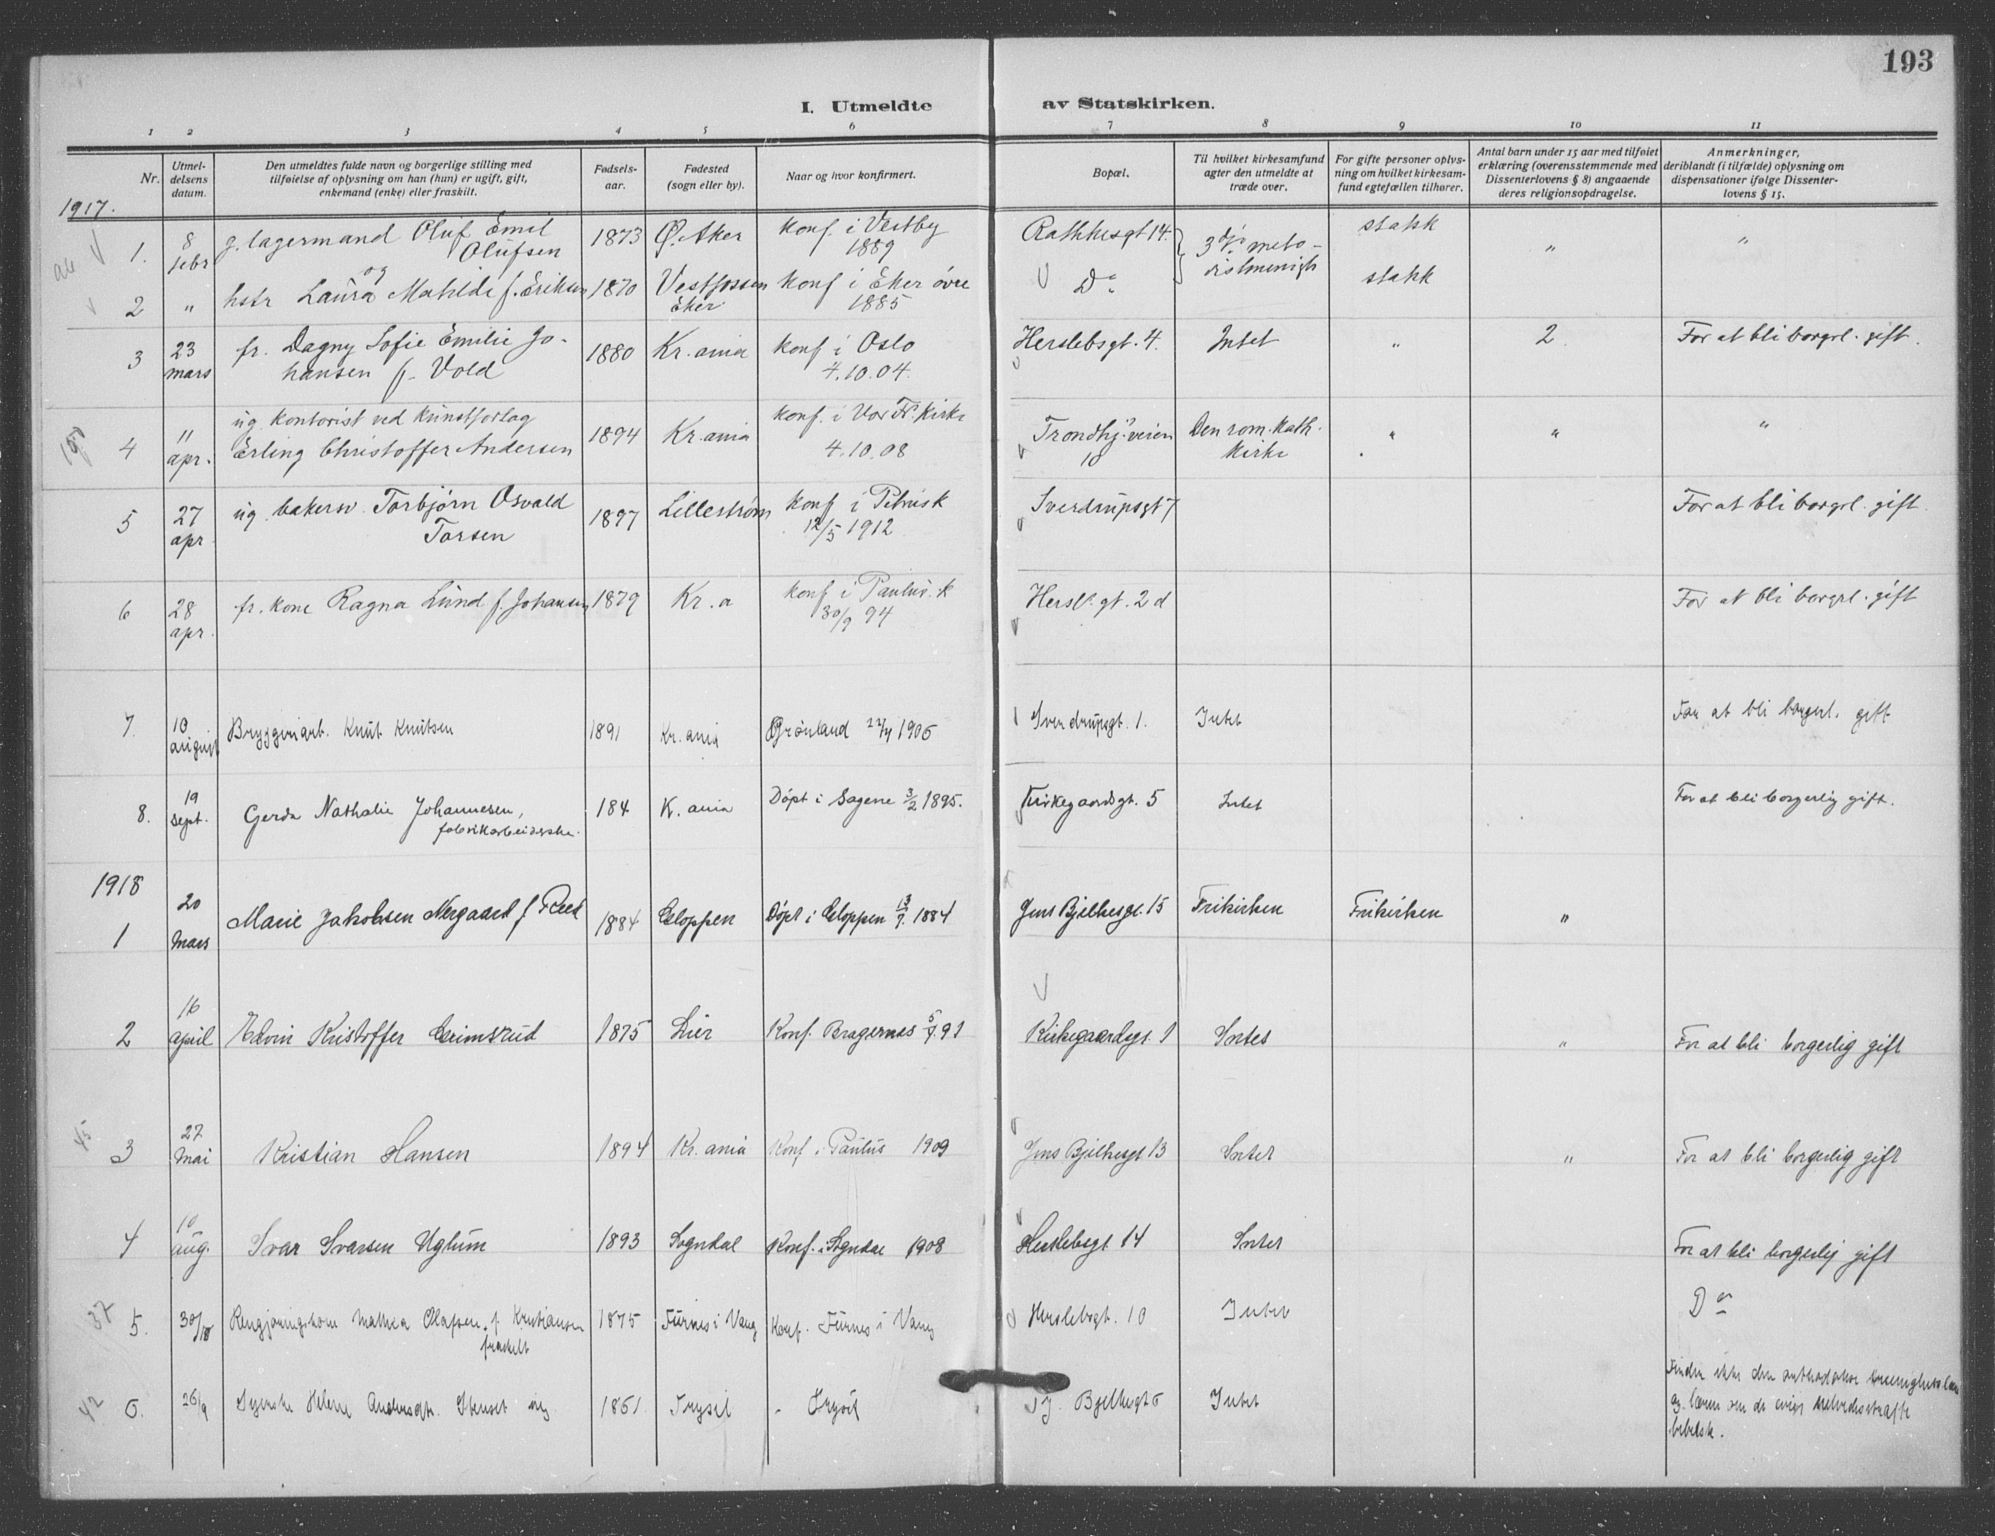 193
I. Utmeldte av Statskirken.
1 2 3 4 5 6 7 8 9 10 11
Nr.
Utmel-
delsens
datum.
Den utmeldtes fulde navn og borgerlige stilling med
tilføielse af oplysning om han (hun) er ugift, gift,
enkemand (enke) eller fraskilt.
Fødsels-
aar.
Fødested
(sogn eller by).
Naar og hvor konfirmert.
Bopæl.
Til hvilket kirkesamfund
agter den utmeldte at
træde over.
For gifte personer oplys-
ning om hvilket kirkesam-
fund egtefællen tilhører.
Antal barn under 15 aar med tilføiet
erklæring (overensstemmende med
Dissenterlovens § 8) angaaende
deres religionsopdragelse.
Anmerkninger,
deriblandt (i tilfælde) oplysning om
dispensationer ifølge Dissenter-
lovens § 15.
1917.
1. 8 febr g. lagermand Oluf Emil 1873 Ø. Aker konf. i Vestby Rathkesgt 14. 3die meto- statk " "
Olufsen 1889 distmenigh
og
2 " hstr Laura Mathilde f. Eriksen 1870 Vestfossen konf i Eker øvre Do statk
Eker 1885
3 23 mars fr. Dagny Sofie Emilie Jo- 1880 Kr.ania konf i Oslo Herslebsgt. 4. Intet " 2 For at bli borgrl. gift.
hansen f. Vold 4.10.04.
4 11 apr. ug kontorist ved kunstforlag 1894 Kr.ania konf. i Vor Fr. Kirke Trondhj.veien Den rom. kath. " " "
Erling Christoffer Andersen 4.10.08 10 Kirke
5 27 apr ug. bakersv. Torbjørn Osvald 1897 Lillestrøm konf i Petrus k Sverdrupsgt 7 For at bli borgrl. gift.
Torsen 12/5 1912
6 28 apr. fr. kone Ragna Lund f. Johansen 1879 Kr.a konf i Paulus. k Hersl. gt. 2 d For at bli borgrl. gift
30/9 94
7. 10 august Bryggeriarb. Knut Knutsen 1891 Kr.ania Grønland 1906 Sverdrupsgt. 1. Intet For at bli borgerl. gift
8. 19 sept. Gerda Nathalie Johannesen, 184 K.ania Døpt i Sagene 3/2 1895. Kirkegaardsgt. 5 Intet For at bli borgerlig gift.
fabrikarbeiderske.
1918
1 20 mars Marie Jakobsen Nergaard f Reed 1884 Gloppen Døpt i Gloppen 13/7. 1884 Jens Bjelkesgt. 15 Frikirken Frikirken "
2 16 april Edvin Kristoffer Grimsrud 1875 Lier Konf. Bragernes 91 Kirkegaardsgt. 1 Intet " For at bli borgerlig gift
45
3 27 mai Kristian Hansen 1894 Kr.ania Konf i Paulus 1909 Jens Bjelkesgt 13 Intet " For at bli borgerlig gift
4 10 aug. Ivar Ivarsen Uglum 1893 Sogndal Konf. i Sogndal 1908 Herslebsgt 14 Intet For at bli borgerlig gift
37
5. 30/ Rengjøringskone Mathea Olafsen f Kristiansen 1875 Furnes i Vang Konf. Furnes i Vang Herslebsgt. 10 Intet Do
fraskilt
42
6. 26/9 Helene Stenset ug 1861 Trysil " Trysil J. Bjelkesgt 6 Intet Finder ikke den
og læren om de evige helvedesstraffe
bibelsk.